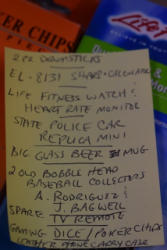 ER CHIPS
Life
2 PR DRUMSTICKS
EL-8131 SHARP CALCULATOR
LIFE FITNESS WATCH &
HEART RATE MONITOR
STATE POLICE CAR
REPLICA MINI
BIG GLASS BEER MUG
2 OLD BOBBLE HEAD
BASEBALL COLLECTORS
A. RODRIGUEZ &
J. BAGWELL
SPARE TV REMOTE
GAMING DICE / POKER CHIPS
LEATHER CARRY CASE